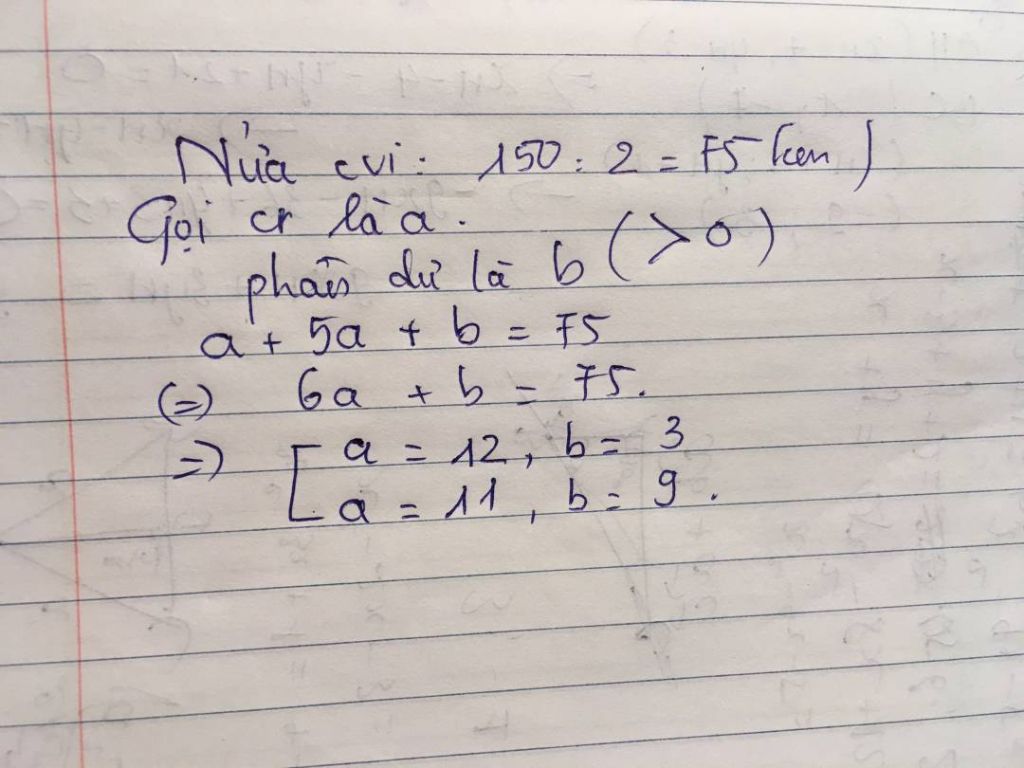 Nửa cvi: 150 : 2 = 75 (cm)
Gọi cr là a.
phần dư là b (>0)
a + 5a + b = 75
(=) 6a + b = 75.
=) [ a = 12, b = 3
a = 11, b = 9.